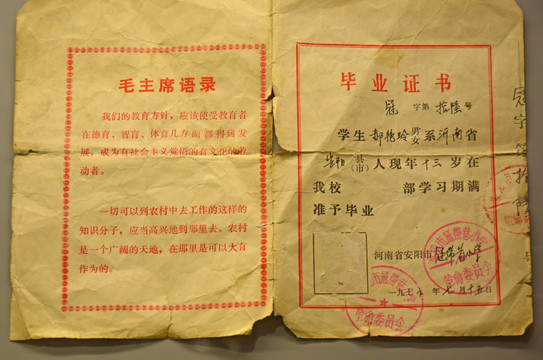 毛主席语录
我们的教育方针，应该使受教育者
在德育、智育、体育几方面都得到发
展，成为有社会主义觉悟的有文化的劳
动者。
一切可以到农村中去工作的这样的
知识分子，应当高兴地到那里去。农村
是一个广阔的天地，在那里是可以大有
作为的。
毕业证书
冠 字第 拾陆 号
学生 郝 玲 男女 系 河南 省
安阳 县(市) 人现年 十三 岁在
我校 部学习期满
准予毕业
河南省安阳市 冠带巷小学
一九七 年 七 月 十五 日
冠字第拾陆
安阳市冠带巷小学
革命委员会